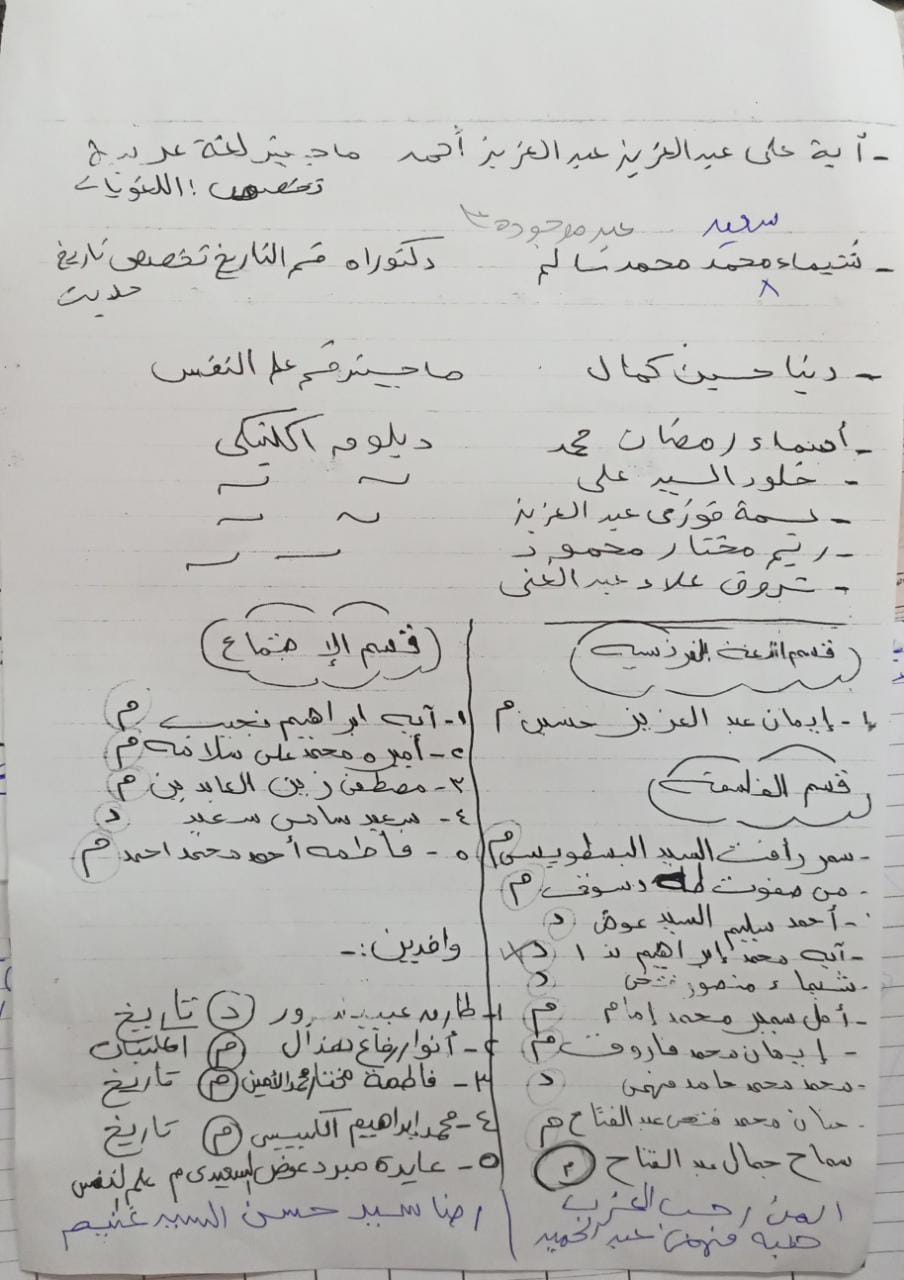 - آية على عبد العزيز عبد العزيز أحمد ماجيستر لغة عربية
تخصص : اللغويات
سعيد غير موجودة
- شيماء محمد محمد سالم دكتوراه قسم التاريخ تخصص تاريخ
حديث
- دينا حسين كمال ماجيستر قسم علم النفس
- أسماء رمضان محمد ديلومه اكلنيكى
- خلود السيد على
- بسمة فوزى عبد العزيز
- ريم مختار محمود
- شروق علاء عبد الغنى
قسم اللغة الفرنسيه
١- إيمان عبد العزيز حسين م
قسم الفلسفة
- سمر رأفت السيد البسطويسى م
- من صفوت طه دسوقى م
- أحمد سليم السيد عوض د
- آيه محمد إبراهيم د
- شيماء منصور د
- أمل سمير محمد إمام م
- إيمان محمد فاروق م
- محمد محمد حامد فهمى د
- حنان محمد فتحى عبد الفتاح م
سماح جمال عبد الفتاح م
رجب العزب
هبه فهمى عبد الحميد
قسم الإجتماع
١- آيه ابراهيم نجيب م
٢- أميره محمد على سلامه م
٣- مصطفى زين العابدين م
٤- سعيد سامى سعيد د
٥- فاطمه أحمد محمد احمد م
وافدين :-
١- طارق عبد د تاريخ
٢- أنوار رفاع هذال م المكتبات
٣- فاطمة مختار محمد الأمين م تاريخ
٤- محمد ابراهيم الكبيسى م تاريخ
٥- عايدة مبرد عوض السعيدى م علم النفس
رضا سيد حسن السيد غنيم